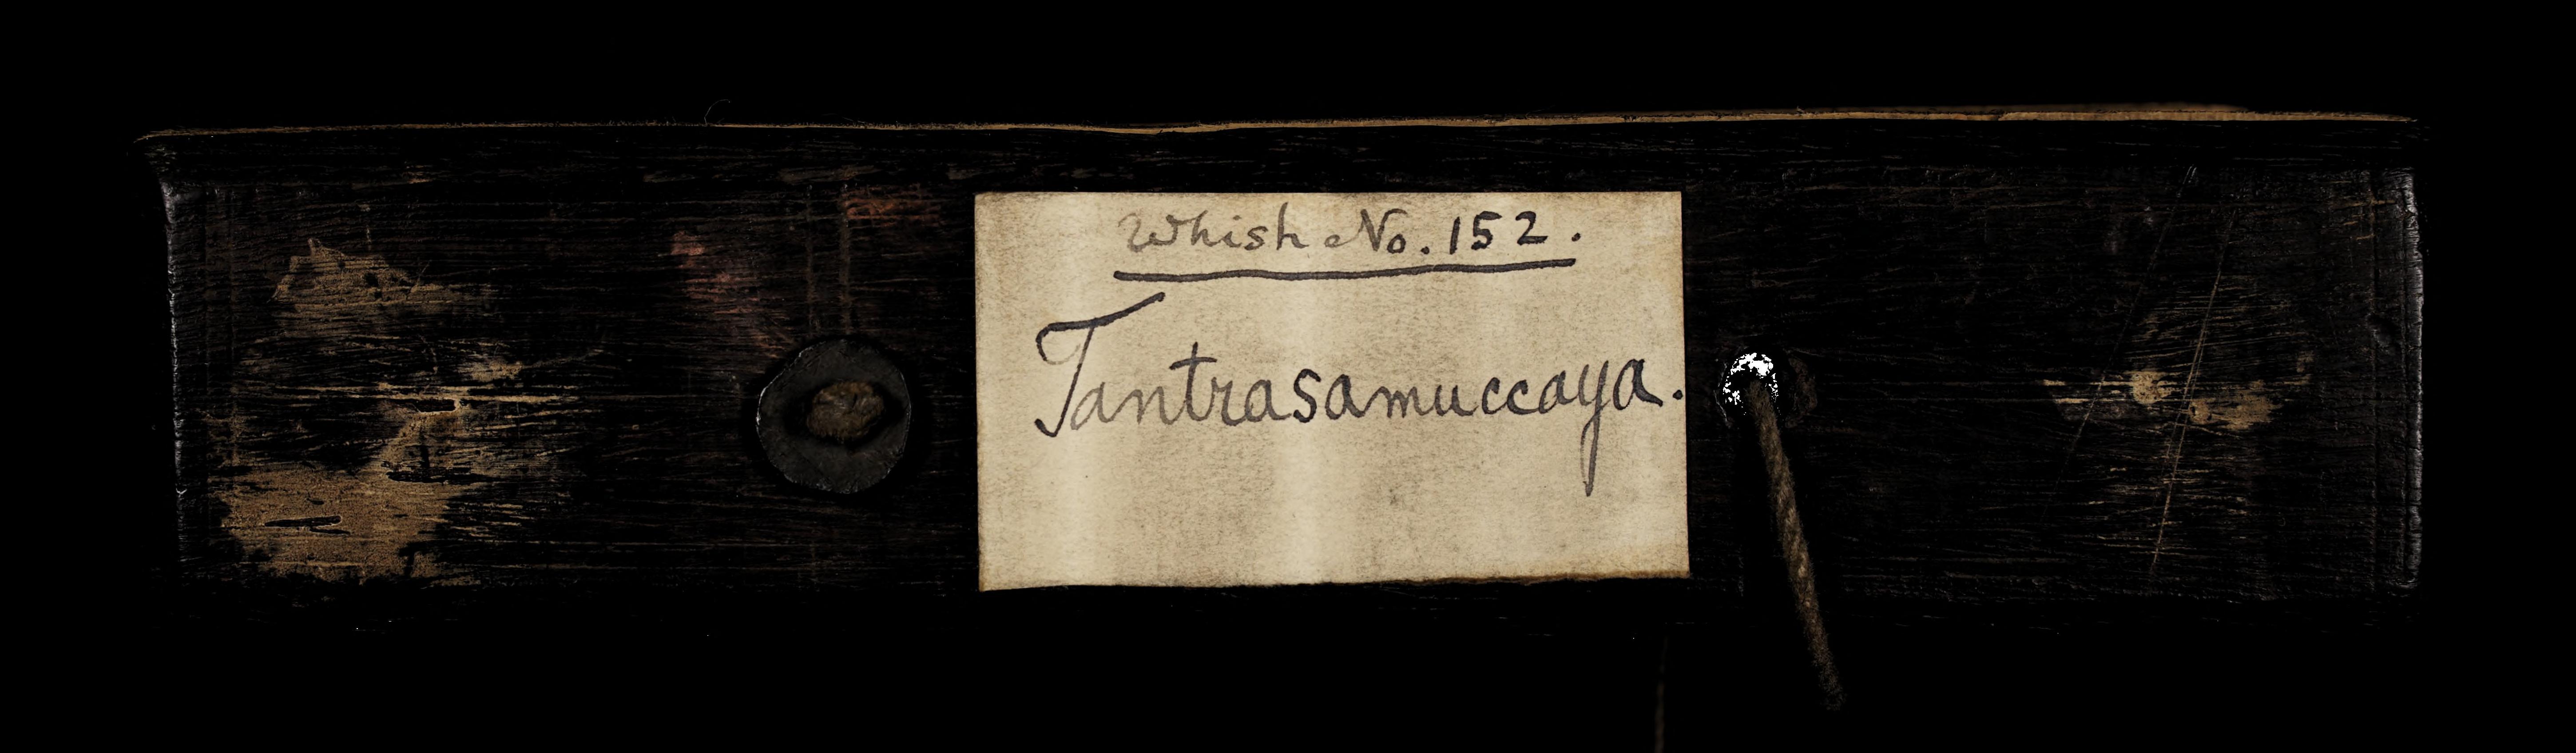 Whish No. 152.
Tantrasamuccaya.